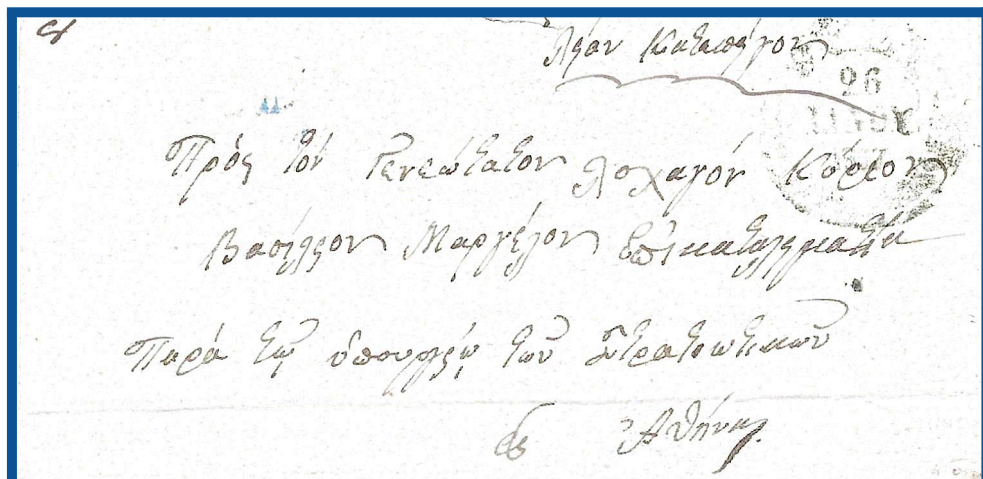 Λίαν Κατεπεῖγον
26
Πρός τόν Γενεώτατον Λοχαγόν Κύριον
Βασίλειον Μαργέλον
Παρά τῷ ὑπουργείῳ τῶν Στρατιωτικῶν
εἰς Ἀθήνας